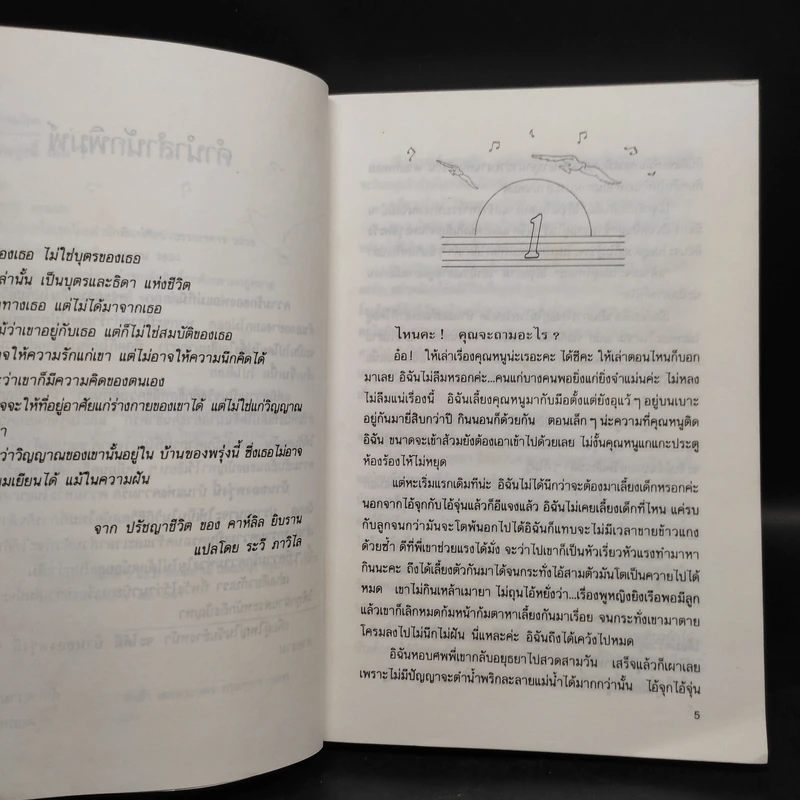 องเธอ ไม่ใช่บุตรของเธอ
ล่านั้น เป็นบุตรและธิดา แห่งชีวิต
ทางเธอ แต่ไม่ได้มาจากเธอ
ม้ว่าเขาอยู่กับเธอ แต่ก็ไม่ใช่สมบัติของเธอ
าจให้ความรักแก่เขา แต่ไม่อาจให้ความนึกคิดได้
ะว่าเขาก็มีความคิดของตนเอง
าจจะให้ที่อยู่อาศัยแก่ร่างกายของเขาได้ แต่ไม่ใช่แก่วิญญาณ
า
ว่าวิญญาณของเขานั้นอยู่ใน บ้านของพรุ่งนี้ ซึ่งเธอไม่อาจ
ยมเยียนได้ แม้ในความฝัน
จาก ปรัชญาชีวิต ของ คาห์ลิล ยิบราน
แปลโดย ระวี ภาวิไล
1
ไหนคะ! คุณจะถามอะไร?
อ๋อ! ให้เล่าเรื่องคุณหนูน่ะเรอะคะ ได้ซีคะ ให้เล่าตอนไหนก็บอก
มาเลย อิฉันไม่ลืมหรอกค่ะ...คนแก่บางคนพอยิ่งแก่ยิ่งจำแม่นค่ะ ไม่หลง
ไม่ลืมแน่เรื่องนี้ อิฉันเลี้ยงคุณหนูมากับมือตั้งแต่ยังอุแว้ๆ อยู่บนเบาะ
อยู่กันมายี่สิบกว่าปี กินนอนก็ด้วยกัน ตอนเล็กๆ น่ะความที่คุณหนูติด
อิฉัน ขนาดจะเข้าส้วมยังต้องเอาเข้าไปด้วยเลย ไม่งั้นคุณหนูแกแกะประตู
ห้องร้องไห้ไม่หยุด
แต่หะเริ่มแรกเดิมทีน่ะ อิฉันไม่ได้นึกว่าจะต้องมาเลี้ยงเด็กหรอกค่ะ
นอกจากไอ้จุกกับไอ้จุ่นแล้วก็อีแจงแล้ว อิฉันไม่เคยเลี้ยงเด็กที่ไหน แค่รบ
กับลูกจนกว่ามันจะโตพ้นอกไปได้อิฉันก็แทบจะไม่มีเวลาขายข้าวแกง
ด้วยซ้ำ ดีที่พี่เขาช่วยแรงได้มั่ง จะว่าไปเขาก็เป็นหัวเรี่ยวหัวแรงทำมาหา
กินนะคะ ถึงได้เลี้ยงตัวกันมาได้จนกระทั่งไอ้สามตัวมันโตเป็นควายไปได้
หมด เขาไม่กินเหล้าเมายา ไม่ถุนไอ้หยั่งว่า...เรื่องพูหญิงยิงเรือพอมีลูก
แล้วเขาก็เลิกหมดก้มหน้าก้มตาหาเลี้ยงกันมาเรื่อย จนกระทั่งเขามาตาย
โครมลงไปไม่นึกไม่ฝัน นี่แหละค่ะ อิฉันถึงได้เคว้งไปหมด
อิฉันหอบศพพี่เขากลับอยุธยาไปสวดสามวัน เสร็จแล้วก็เผาเลย
เพราะไม่มีปัญญาจะตำน้ำพริกละลายแม่น้ำได้มากกว่านั้น ไอ้จุกไอ้จุ่น
5